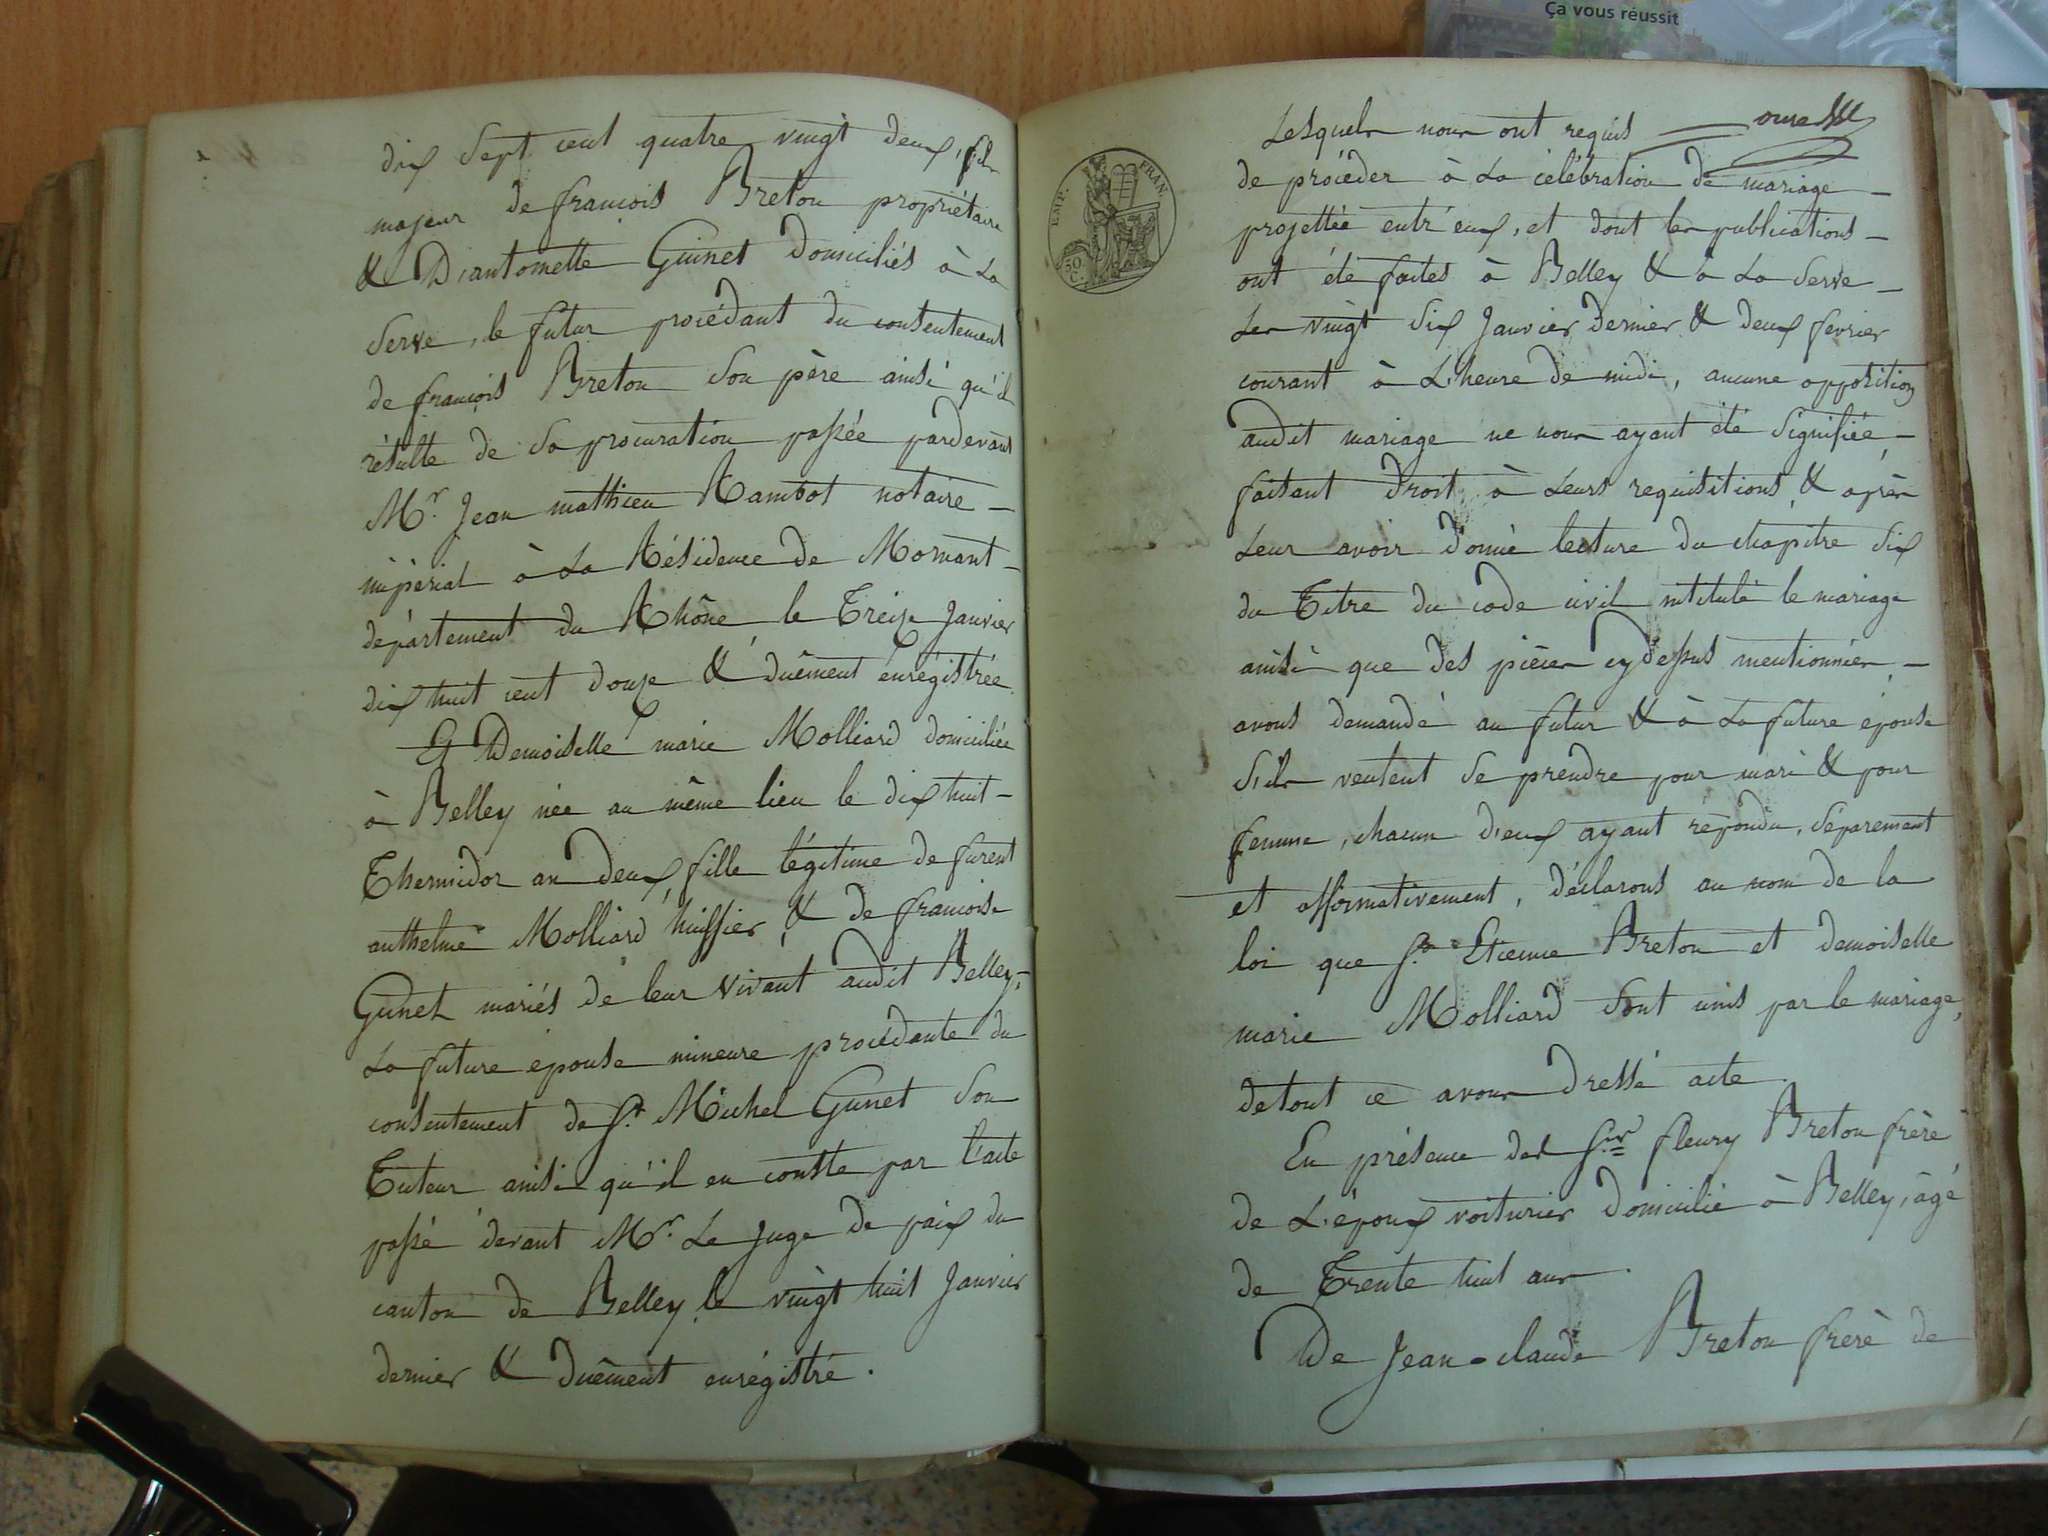 dix Sept cent quatre vingt deux, fils
majeur de francois Breton propriétaire
& D'antoinette Guinet Domiciliés à La
Serve, le futur procédant du consentement
de françois Breton Son père ainsi qu'il
résulte de Sa procuration passée pardevant
Mr. Jean mathieu Rambot notaire —
impérial à La Résidence de Mornant —
département du Rhône le Treize Janvier
dix huit cent douze & duêment enrégistrée.
Et Demoiselle marie Molliard domiciliée
à Belley née au même lieu le dix huit —
Thermidor an deux, fille légitime de furent
anthelme Molliard huissier, & de francoise
Gunet mariés de leur vivant audit Belley,
La future épouse mineure procédante du
consentement de Sr. Michel Gunet Son
Tuteur ainsi qu'il en conste par l'acte
passé devant Mr. Le Juge de paix du
canton de Belley le vingt huit Janvier
dernier & duêment enrégistré.
Ça vous réussit
EMP. FRAN.
50 C.
Lesquels nous ont requis
de procéder à La célébration de mariage —
projettée entr'eux, et dont les publications —
ont été faites à Belley & à La Serve —
Les vingt Six Janvier dernier & deux fevrier
courant à L'heure de midi, aucune opposition
audit mariage ne nous ayant été Signifiée, —
faisant Droit à Leurs requisitions, & après
Leur avoir donné lecture du chapitre Six
du Titre du code civil intitulé le mariage
ainsi que des pièces cydessus mentionnées, —
avons demandé au futur & à La future épouse
S'ils veulent Se prendre pour mari & pour
femme, chacun d'eux ayant répondu, Séparement
et affirmativement, déclarons au nom de la
loi que Sr. Etienne Breton et demoiselle
marie Molliard Sont unis par le mariage,
detout ce avons dressé acte.
En présence des Srs. fleury Breton frère
de L'époux voiturier domicilié à Belley, âgé
de Trente huit ans.
De Jean-claude Breton frère de